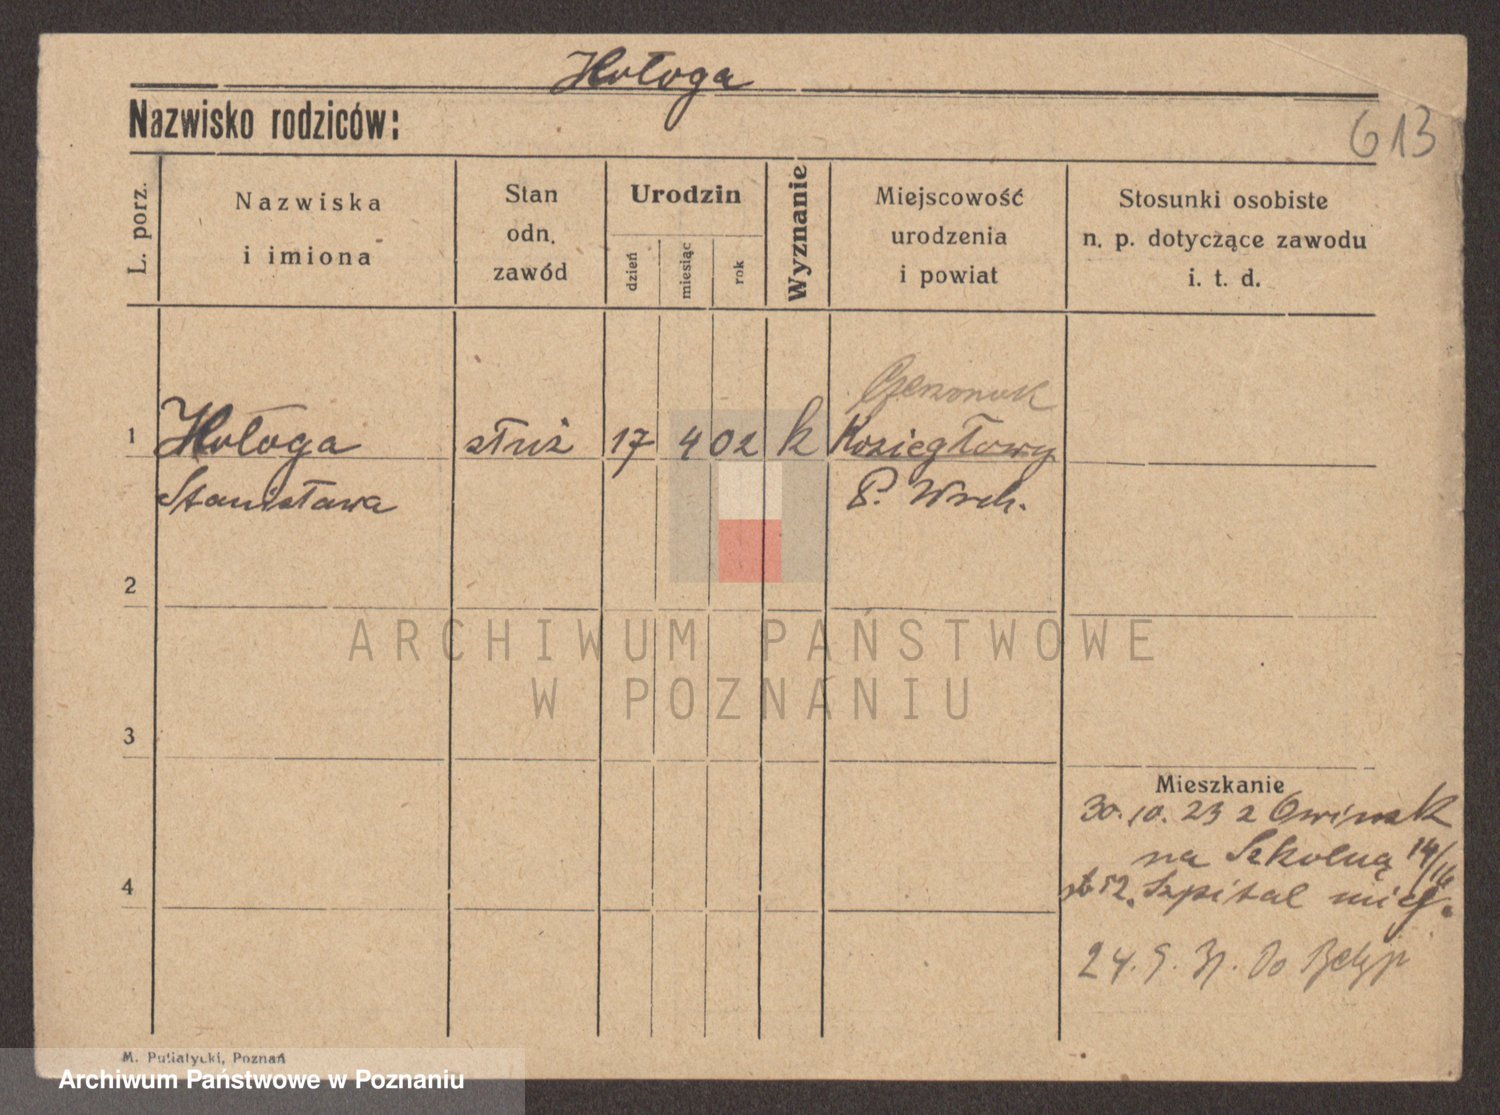 Hołoga
Nazwisko rodziców:
613
L. porz.
Nazwiska
i imiona
Stan
odn.
zawód
Urodzin
dzień
miesiąc
rok
Wyznanie
Miejscowość
urodzenia
i powiat
Stosunki osobiste
n. p. dotyczące zawodu
i. t. d.
Czerwonak
1 Hołoga służ 17 4 02 k Koziegłowy
Stanisława P. Wsch.
2
ARCHIWUM PAŃSTWOWE
W POZNANIU
3
Mieszkanie
30.10.23 z Owinsk
na Szkolną 14/16
52. Szpital miej.
4
24.9. Do Belgji
M. Putiatycki, Poznań
Archiwum Państwowe w Poznaniu